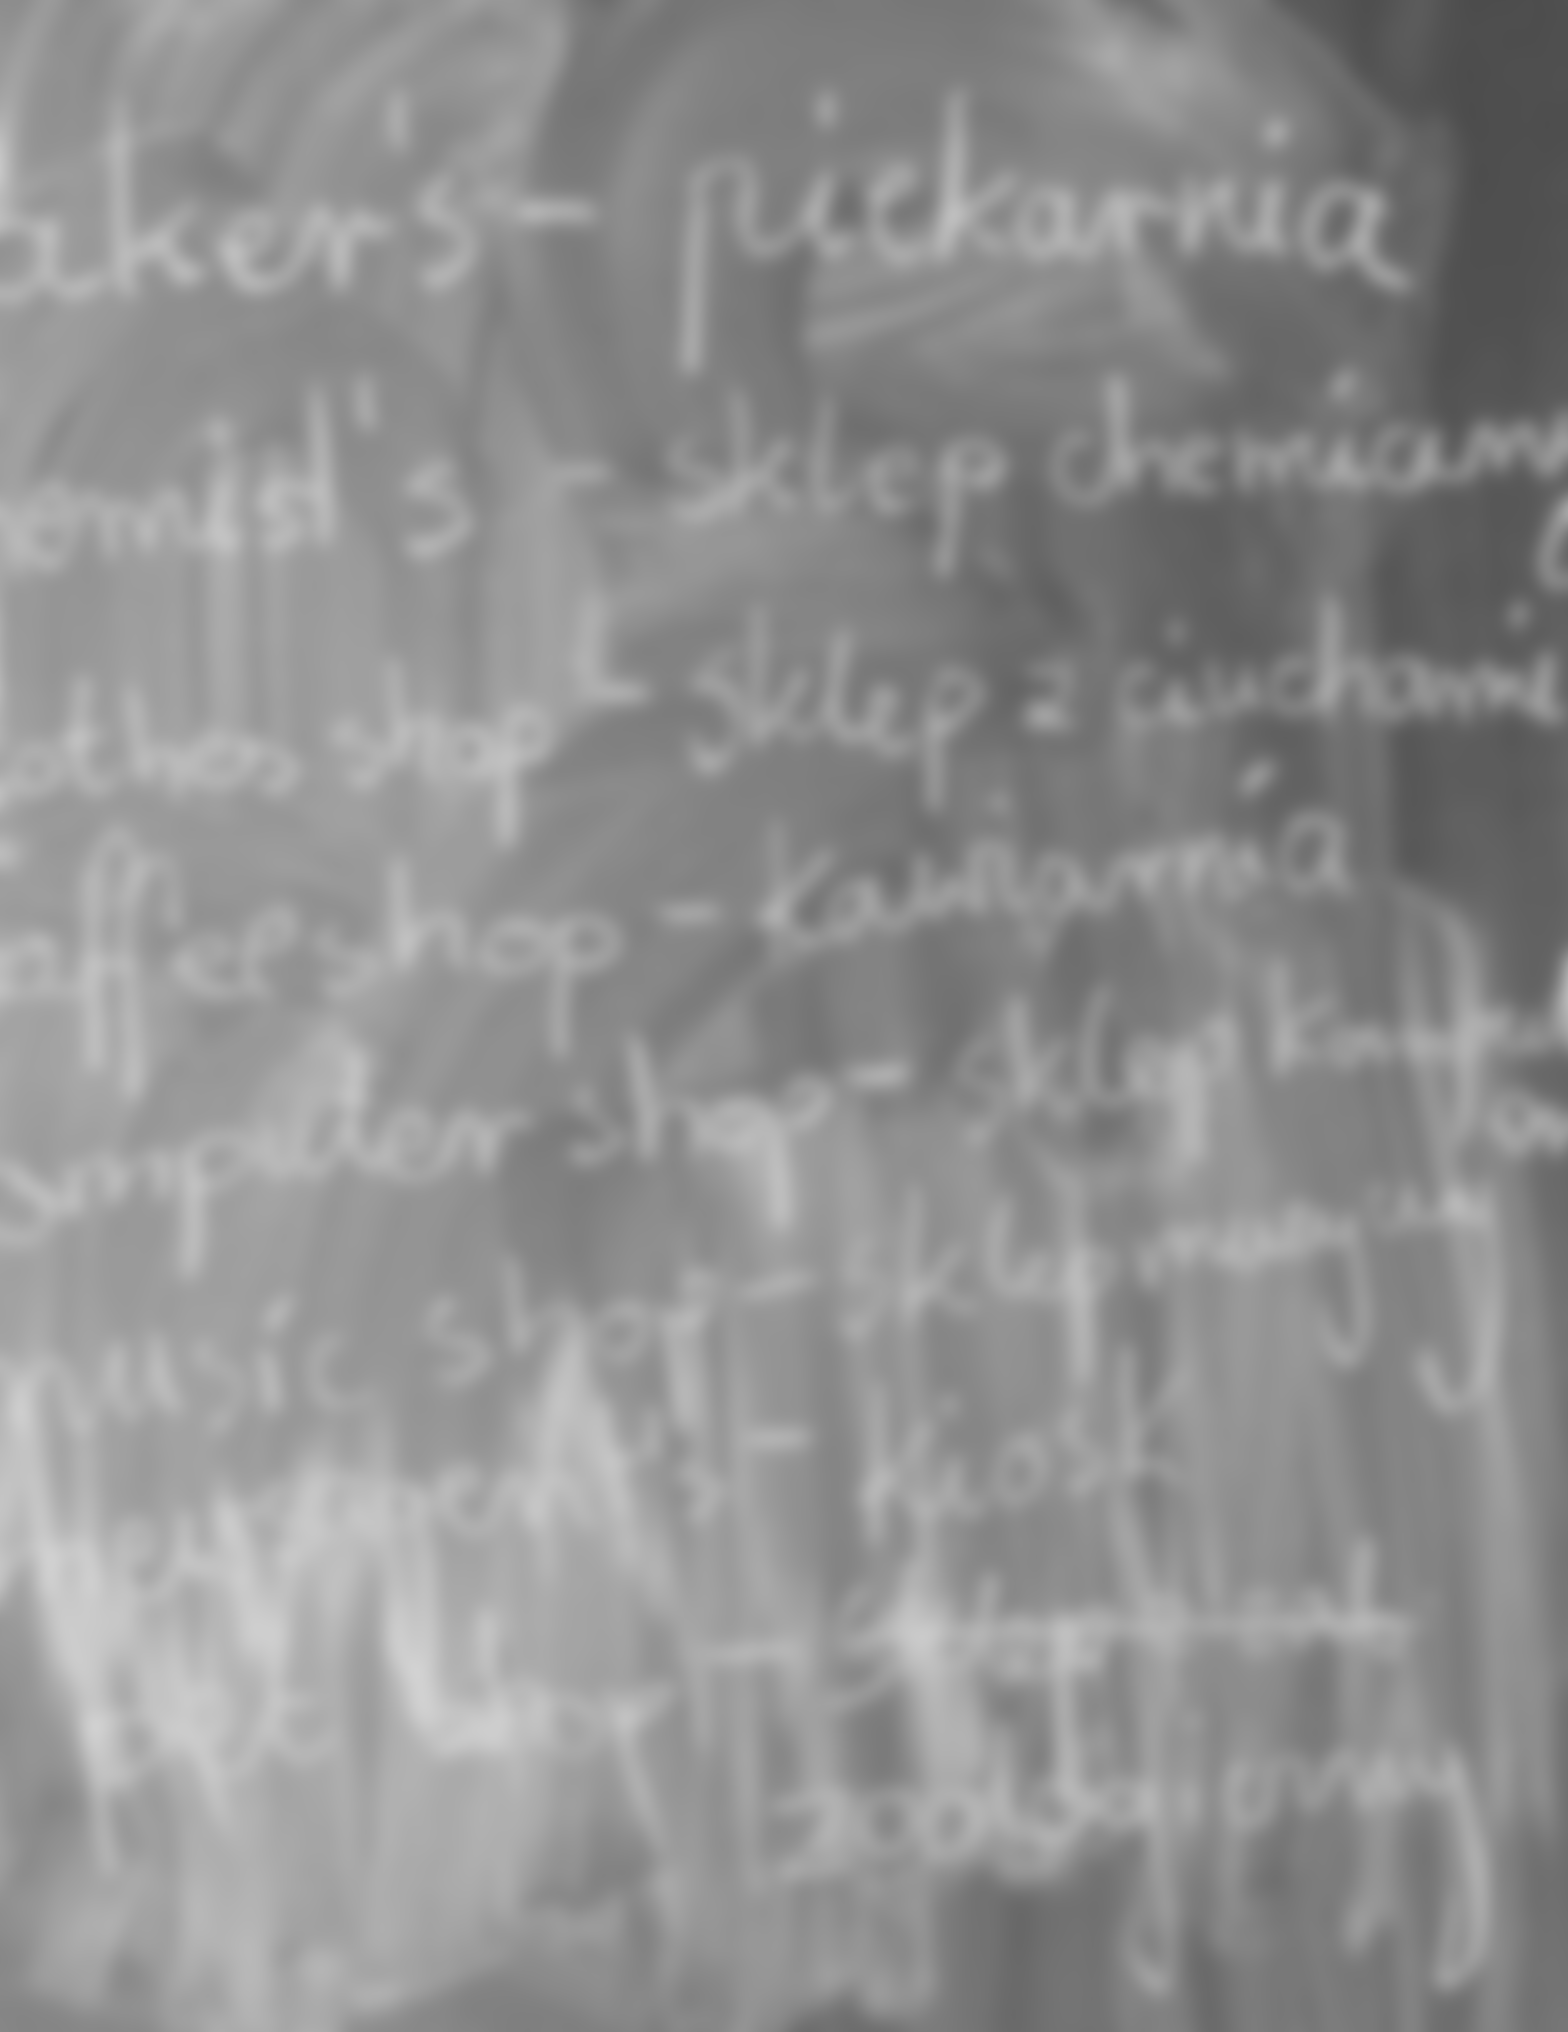 akers - piekarnia
emist's - sklep chemiczn
othes shop - sklep z ciuchami
offeeshop - kawiarnia
omputer shop - sklep kompu
music shop - sklep muzyczny
's - kiosk
- sklep
zoologiczny